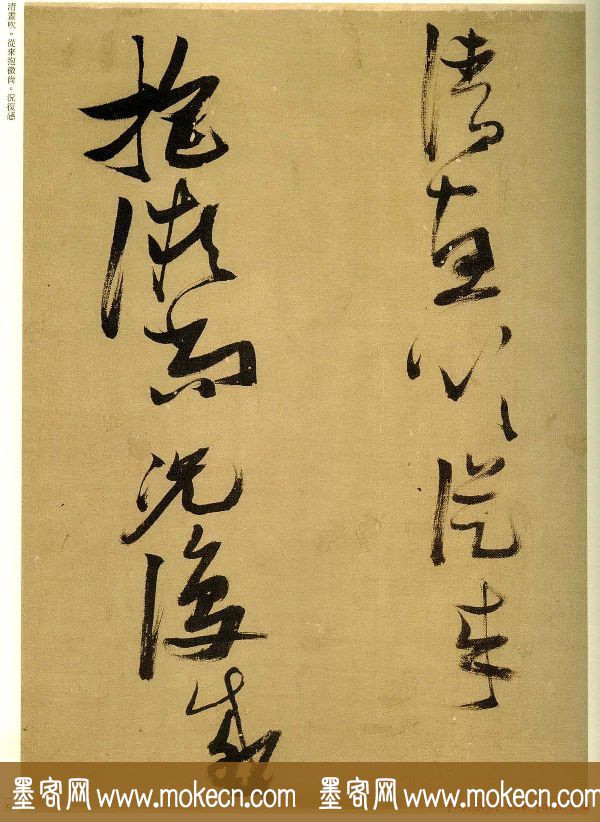 清晝吹。從來抱微尚。況復感
清晝吹從來
抱微尚況復感
墨客网 www.mokecn.com 墨客网 www.mokecn.com